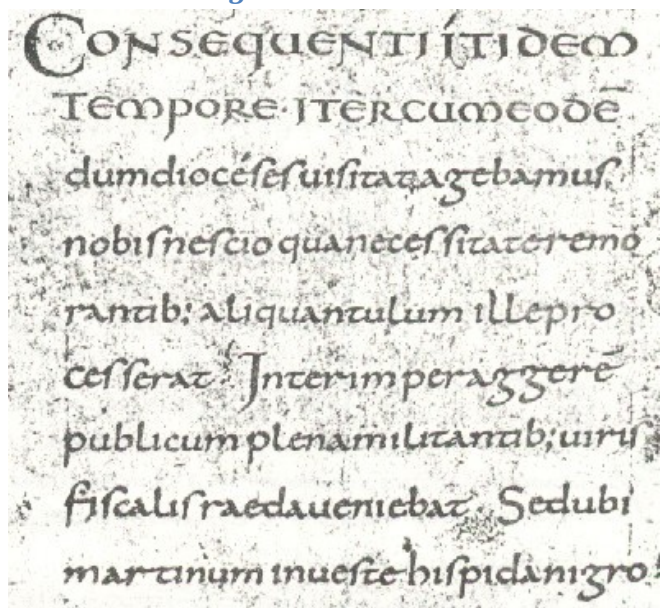 CONSEQUENTI ÍTIDEM
TEMPORE· ITER CUM EODĒ
dum diocéses uisitat agebamus,
nobis nescio qua necessitate remo
rantib; aliquantulum ille pro
cesserat· Interim per aggerē
publicum plena militantib; uiris
fiscalis raeda ueniebat· Sed ubi
martinum in ueste hispida nigro